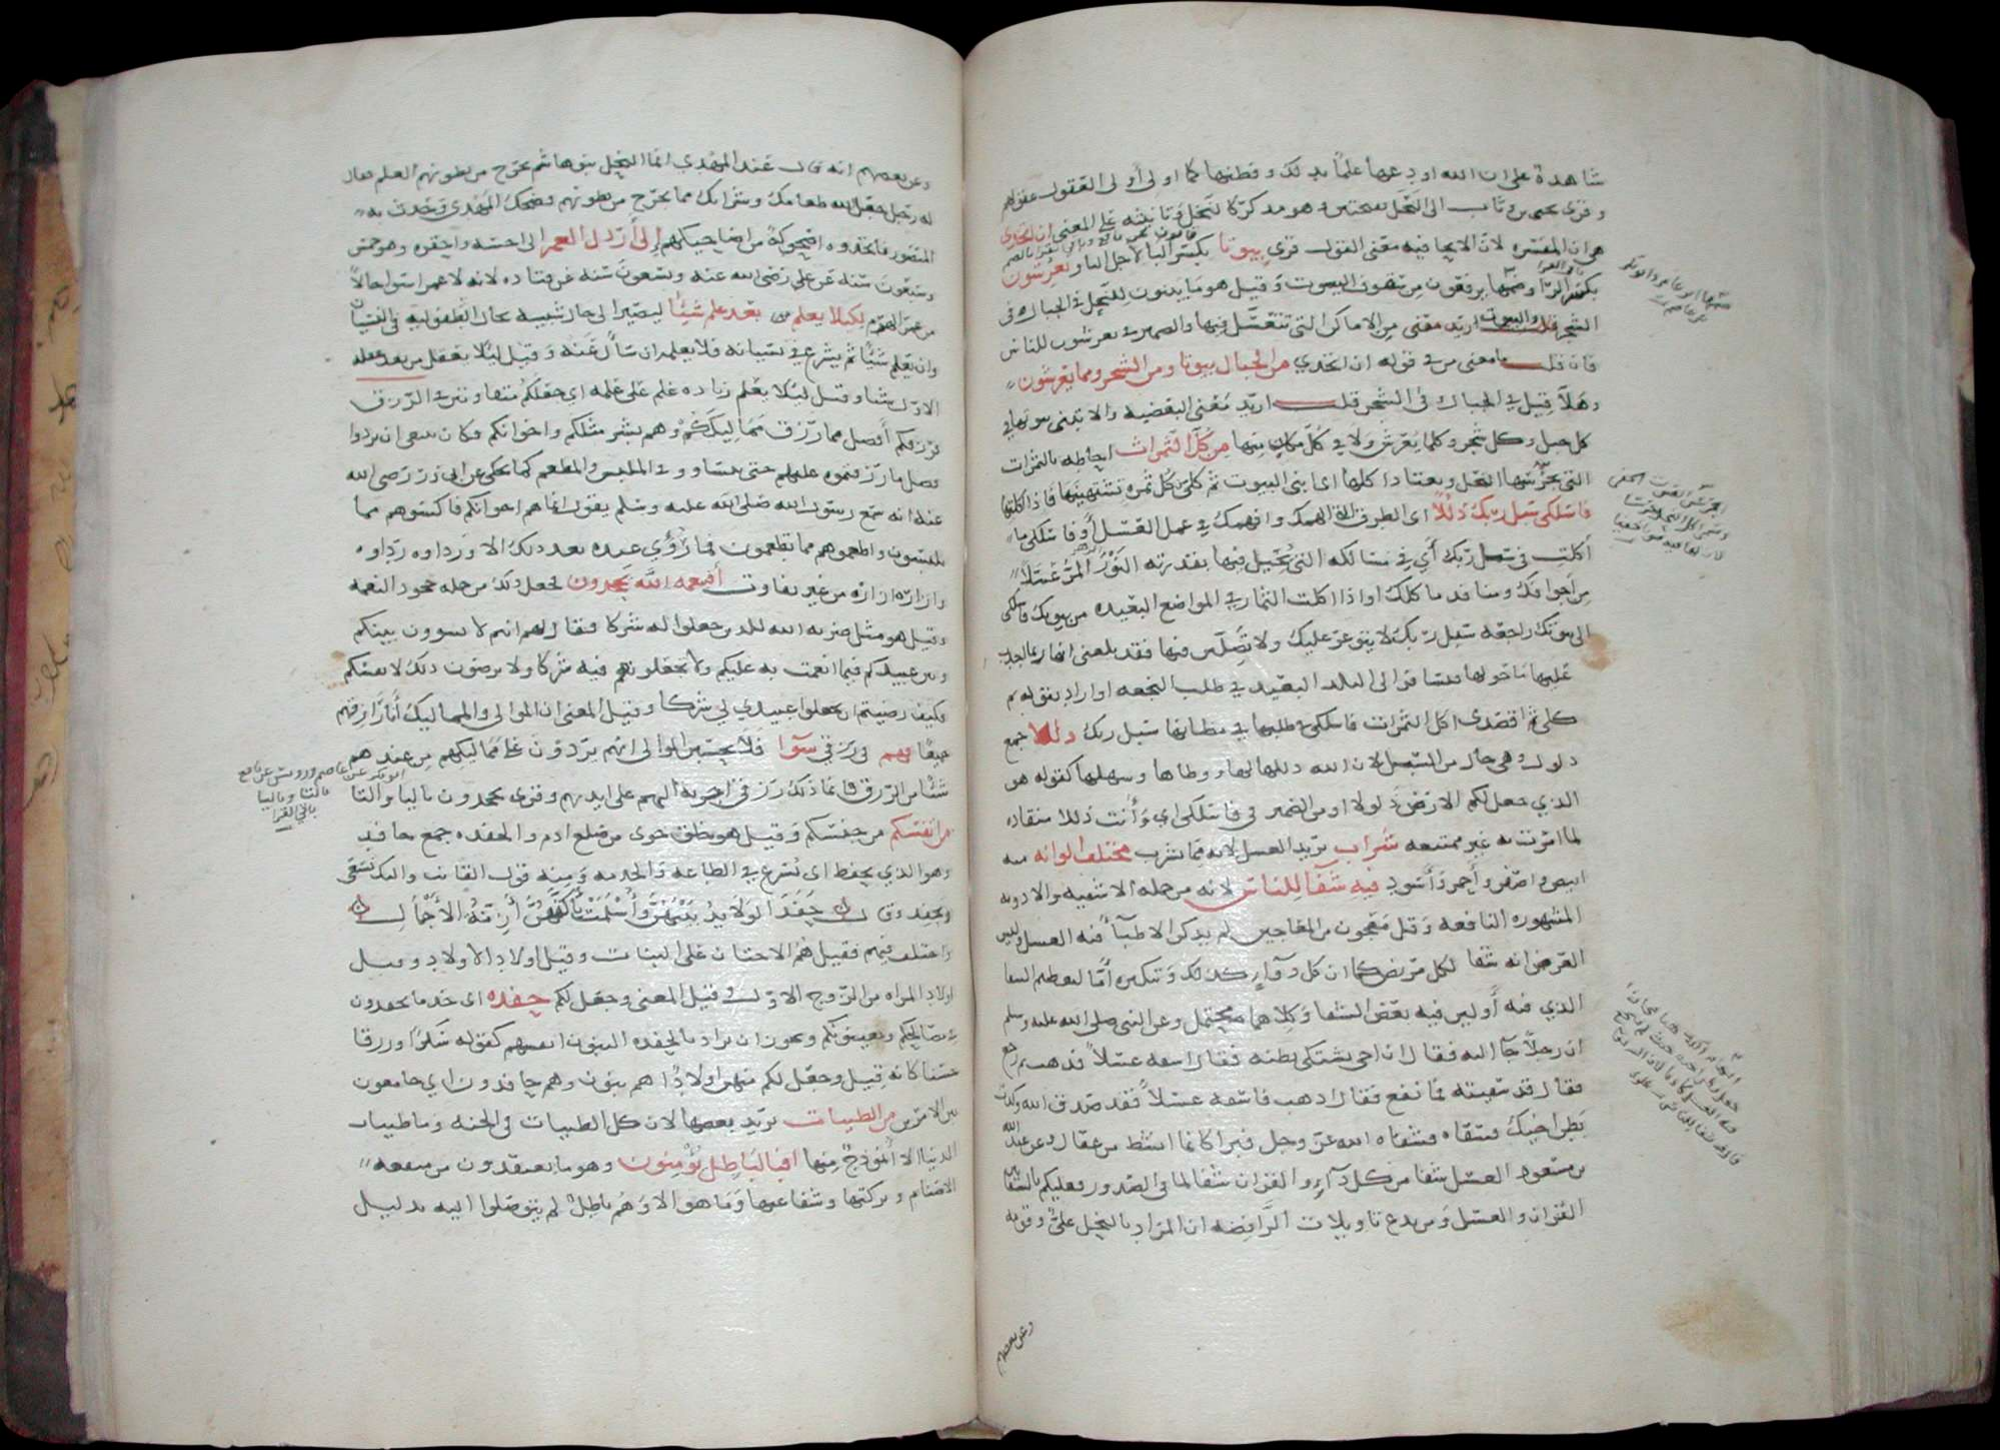 شاهدة على ان الله اودعها علما بذلك وفطنها كما اولى أولى العقول عقولهم
وقرى يحيى بن وثاب الى النحل بفتحتين وهو مذكر كالنخل وتانيثه على المعنى ان اتخذي
هي ان المفسره لان الايحا فيه معنى القول قرئ بيوتا بكسر البا لاجل اليا ويعرشون
بكسر الرا وضمها يرفعون من سقوف البيوت وقيل هو ما يبنون للنحل في الجبال وفي
الشجر والبيوت اريد معنى من الاماكن التي تتعسل فيها والضمير في يعرشون للناس
فان قلت ما معنى من في قوله ان اتخذي من الجبال بيوتا ومن الشجر ومما يعرشون
وهلا قيل في الجبال وفي الشجر قلت اريد معنى البعضيه والا تبنى بيوتها في
كل جبل وكل شجر وكلما يعرش ولا في كل مكان منها من كل الثمرات احاطه بالثمرات
التي تجرسها النحل وتعتاد اكلها اى ابني البيوت ثم كلي من كل ثمره تشتهينها فاذا اكلتها
فاسلكى سبل ربك ذللا اى الطرق التي الهمك وافهمك في عمل العسل أو فاسلكي ما
أكلت في سبل ربك أي في مسالكه التي يحيل فيها بقدرته النور المر عسلا
من اجوافك ومنافذ ماكلك او اذا اكلت الثمار في المواضع البعيده من بيوتك فاسلكي
الى بيوتك راجعه سبل ربك لا يتوعر عليك ولا تضلين فيها فقد بلغني انها ربما اجدب
عليها ما حولها فتسافر الى البلد البعيد في طلب النجعه او اراد بقوله ثم
كلي ثم اقصدى اكل الثمرات فاسلكي في طلبها في مظانها سبل ربك ذللا جمع
ذلول وهي حال من السبل لان الله ذللها لها ووطاها وسهلها كقوله هو
الذي جعل لكم الارض ذلولا او من الضمير في فاسلكى اي وأنت ذللا منقاده
لما امرت به غير ممتنعه شراب يريد العسل لانه مما يشرب مختلف الوانه منه
ابيض واصفر وأحمر وأسود فيه شفا للناس لانه من جمله الاشفيه والادويه
المشهوره النافعه وقل معجون من المعاجين لم يذكر الاطبا فيه العسل وليس
الغرض انه شفا لكل مريض كما ان كل دوآء كذلك وتنكيره أما لتعظيم الشفا
الذي فيه أو لبن فيه بعض الشفا وكلاهما محتمل وعن النبي صلى الله عليه وسلم
ان رجلا جآ اليه فقال ان اخي يشتكى بطنه فقال اسقه عسلا فذهب ثم رجع
فقال قد سقيته فما نفع فقال اذهب فاسقه عسلا فقد صدق الله وكذب
بطن اخيك فسقاه فشفاه الله عز وجل فبرا كانما انشط من عقال وعن عبد الله
بن مسعود العسل شفا من كل دآء والقران شفا لما في الصدور فعليكم بالشفاين
القران والعسل ومن بدع تاويلات الرافضه ان المراد بالنحل علي وقومه
وعن بعضهم
وعن بعضهم انه قال عند المهدي انما النحل بنو هاشم يخرج من بطونهم العلم فقال
له رجل جعل الله طعامك وشرابك مما يخرج من بطونهم فضحك المهدى وحدث به
المنصور فاتخذوه اضحوكة من اضاحيكهم إلى أرذل العمر الى اخسه واحقره وهو خمس
وسبعون سنه عن علي رضى الله عنه وتسعون سنه عن قتاده لانه لا عمر اسوا حالا
من عمر الهرم لكيلا يعلم من بعد علم شيئا ليصير الى حال شبيهه بحال الطفوليه في النسيان
وان يعلم شيئا ثم يسرع في نسيانه فلا يعلمه ان سأل عنه وقيل ليلا يعقل من بعد عقله
الاول شيا وقيل ليلا يعلم زياده علم على علمه اى جعلكم متفاوتين في الرزق
فرزقكم أفضل مما رزق مماليككم وهم بشر مثلكم واخوانكم فكان ينبغي ان تردوا
فضل ما رزقتموه عليهم حتى تتساووا في الملبس والمطعم كما يحكى عن ابى ذر رضي الله
عنه انه سمع رسول الله صلى الله عليه وسلم يقول انما هم اخوانكم فاكسوهم مما
تلبسون واطعموهم مما تطعمون فما رؤي عبده بعد ذلك الا وردآوه رداوه
وازاره ازاره من غير تفاوت أفبنعمه الله يجحدون فجعل ذلك من جمله جحود النعمه
وقيل هو مثل ضربه الله للذين جعلوا له شركا فقال لهم انتم لا تسوون بينكم
وبين عبيدكم فيما انعمت به عليكم ولا تجعلونهم فيه شركا ولا ترضون ذلك لانفسكم
فكيف رضيتم ان تجعلوا عبيدي لي شركا وقيل المعنى ان الموالى والمماليك أنا رازقهم
جميعا فهم في رزقي سوآ فلا يحسبن الموالى انهم يردون على مماليكهم من عندهم
شئا من الرزق فانما ذلك رزقى اجريه اليهم على ايديهم وقرى يجحدون باليا والتا
من انفسكم من جنسكم وقيل هو خلق حوى من ضلع ادم والحفده جمع حافد
وهو الذي يحفد اى يسرع في الطاعه والخدمه ومنه قول القانت واليك نسعى
ونحفد وقال حفد الولايد بينهن وأسلمت بأكفهن أزمة الأجمال
واختلف فيهم فقيل هم الاختان على البنات وقيل اولاد الاولاد وقيل
اولاد المراه من الزوج الاول وقيل المعنى وجعل لكم حفده اى خدما يحفدون
في مصالحكم ويعينونكم ويجوز ان يراد بالحفده البنون انفسهم كقوله سكرا ورزقا
حسنا كانه قيل وجعل لكم منهن اولادا هم بنون وهم حافدون اي جامعون
بين الامرين من الطيبات يريد بعضها لان كل الطيبات في الجنه وما طيبات
الدنيا الا أنموذج منها افبالباطل يؤمنون وهو ما يعتقدون من منفعه
الاصنام وبركتها وشفاعتها وما هو الا وهم باطل لم يتوصلوا اليه بدليل
ابو بكر عن عاصم ورويس عن
بالتا وباليا
باقي القرا